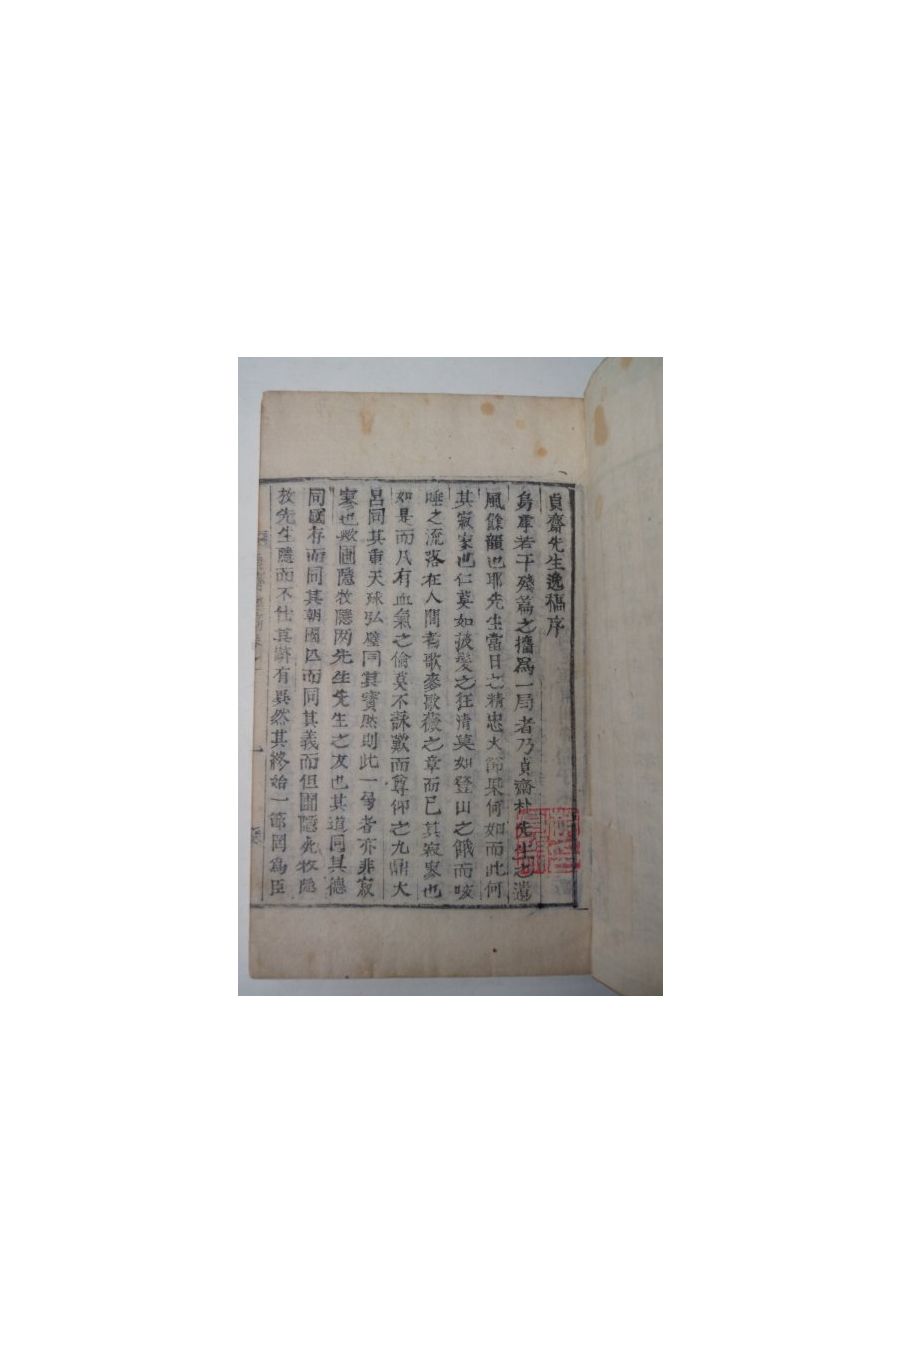 貞齋先生逸稿序
烏庫若干殘篇之㩀爲一局者乃貞齋朴先生之遺
風餘韻也耶先生當日之精忠大節果何如而此何
其寂寥也仁莫如被髮之狂清莫如登山之餓而咳
唾之流落在人間者歌麥歌薇之章而已其寂寥也
如是而凡有血氣之倫莫不詠歎而尊仰之九鼎大
呂同其重天球弘璧同其寶然則此一局者亦非寂
寥也歟圃隱牧隱兩先生先生之友也其道同其德
同國存而同其朝國亡而同其義而但圃隱死牧隱
放先生隱而不仕其辭有異然其終始一節罔爲臣